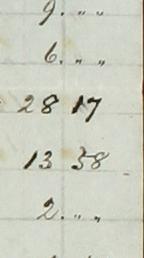 9. " "
6. " "
28 17
13 38
2. " "